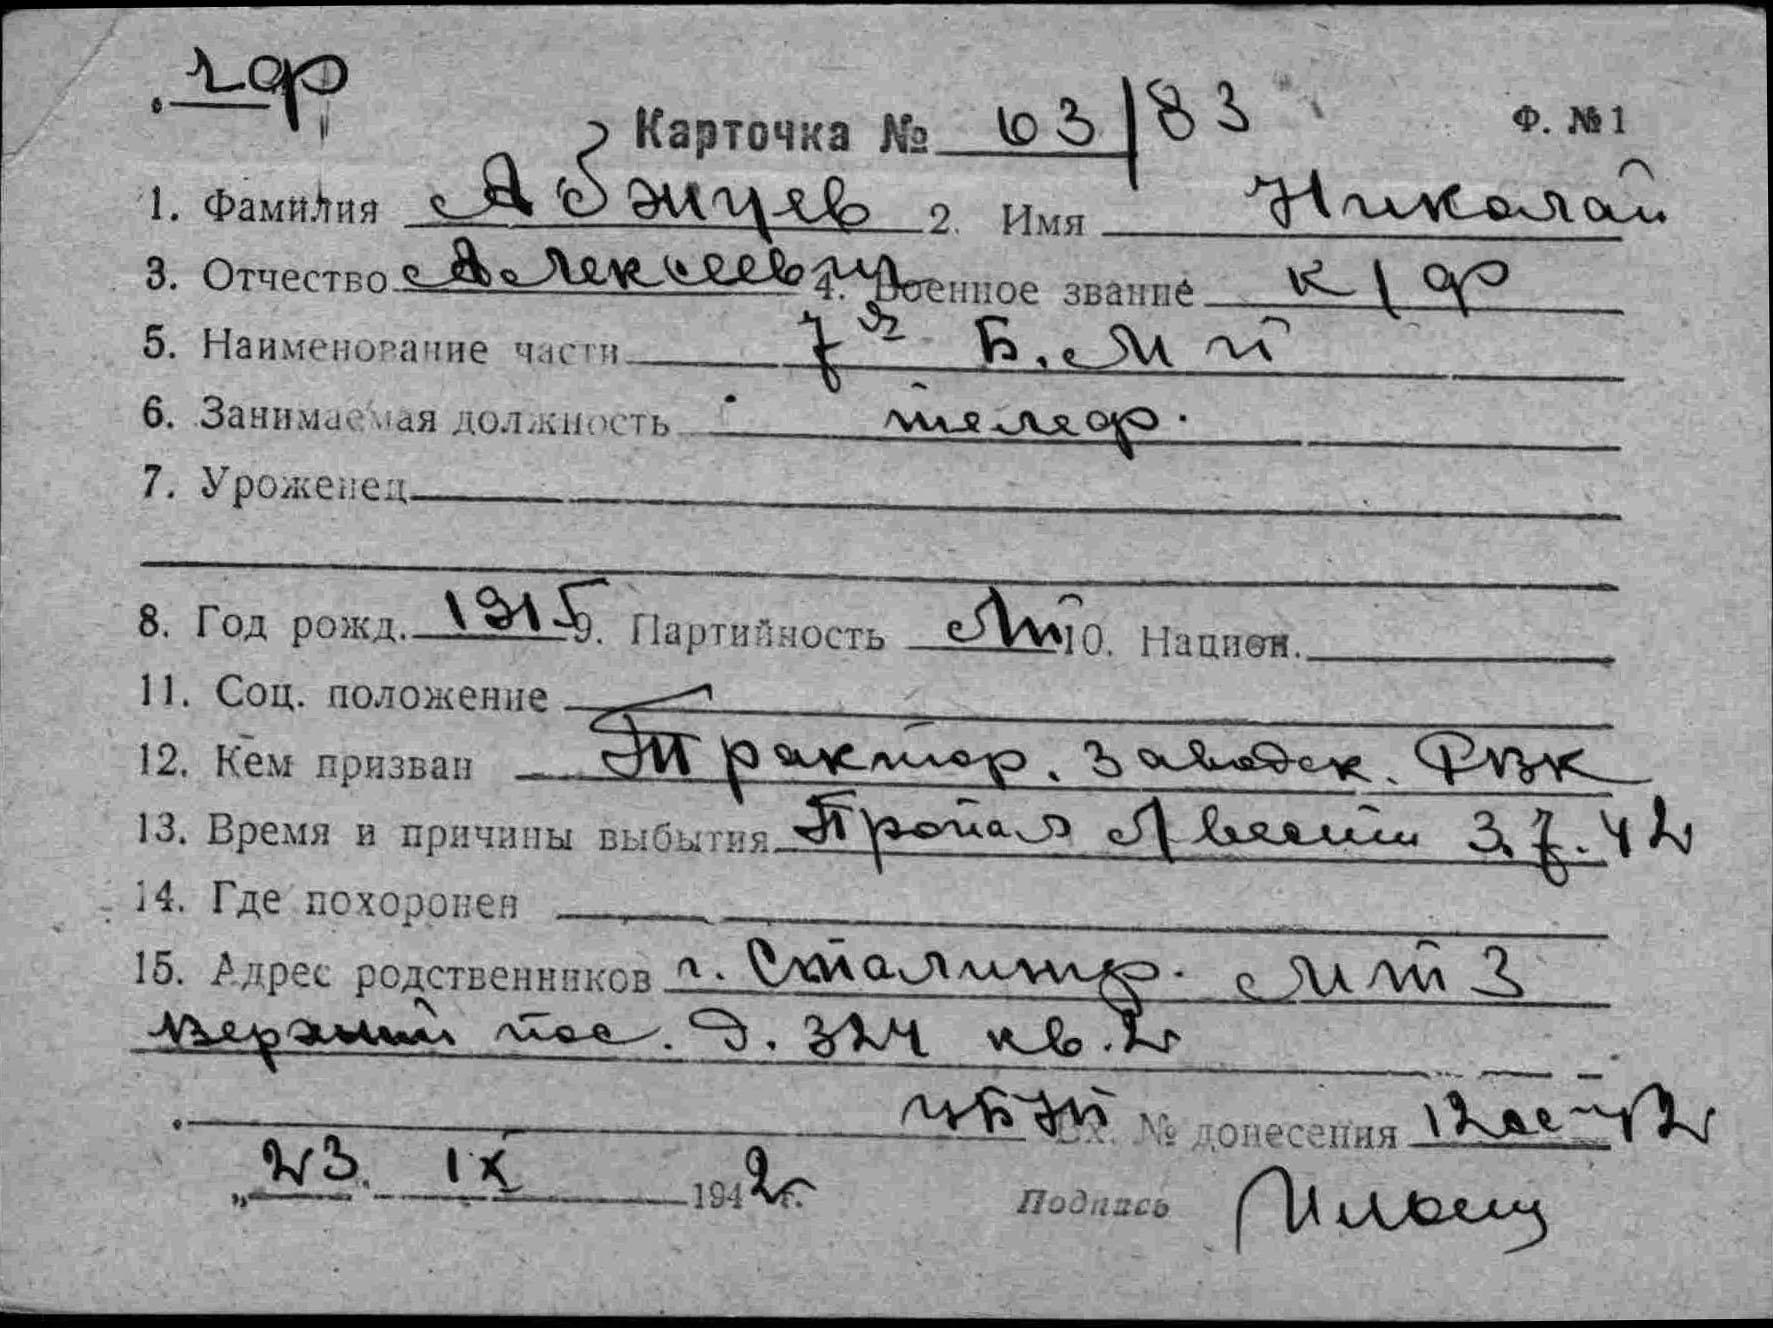 чф
Карточка № 63/83 Ф. №1
1. Фамилия Абжцев 2. Имя Николай
3. Отчество Алексеевич 4. Военное звание к/ф
5. Наименование части 7я Б. МП
6. Занимаемая должность телеф.
7. Уроженец
8. Год рожд. 1915 9. Партийность 10. Национ.
11. Соц. положение
12. Кем призван Трактор. Заводск. РВК
13. Время и причины выбытия Пропал Авести 3.7.42
14. Где похоронен
15. Адрес родственников г. Сталингр. МТЗ
Верхний пос. д. 324 кв. 2
Вх. № донесения
„23. IX 1942г.
Подпись